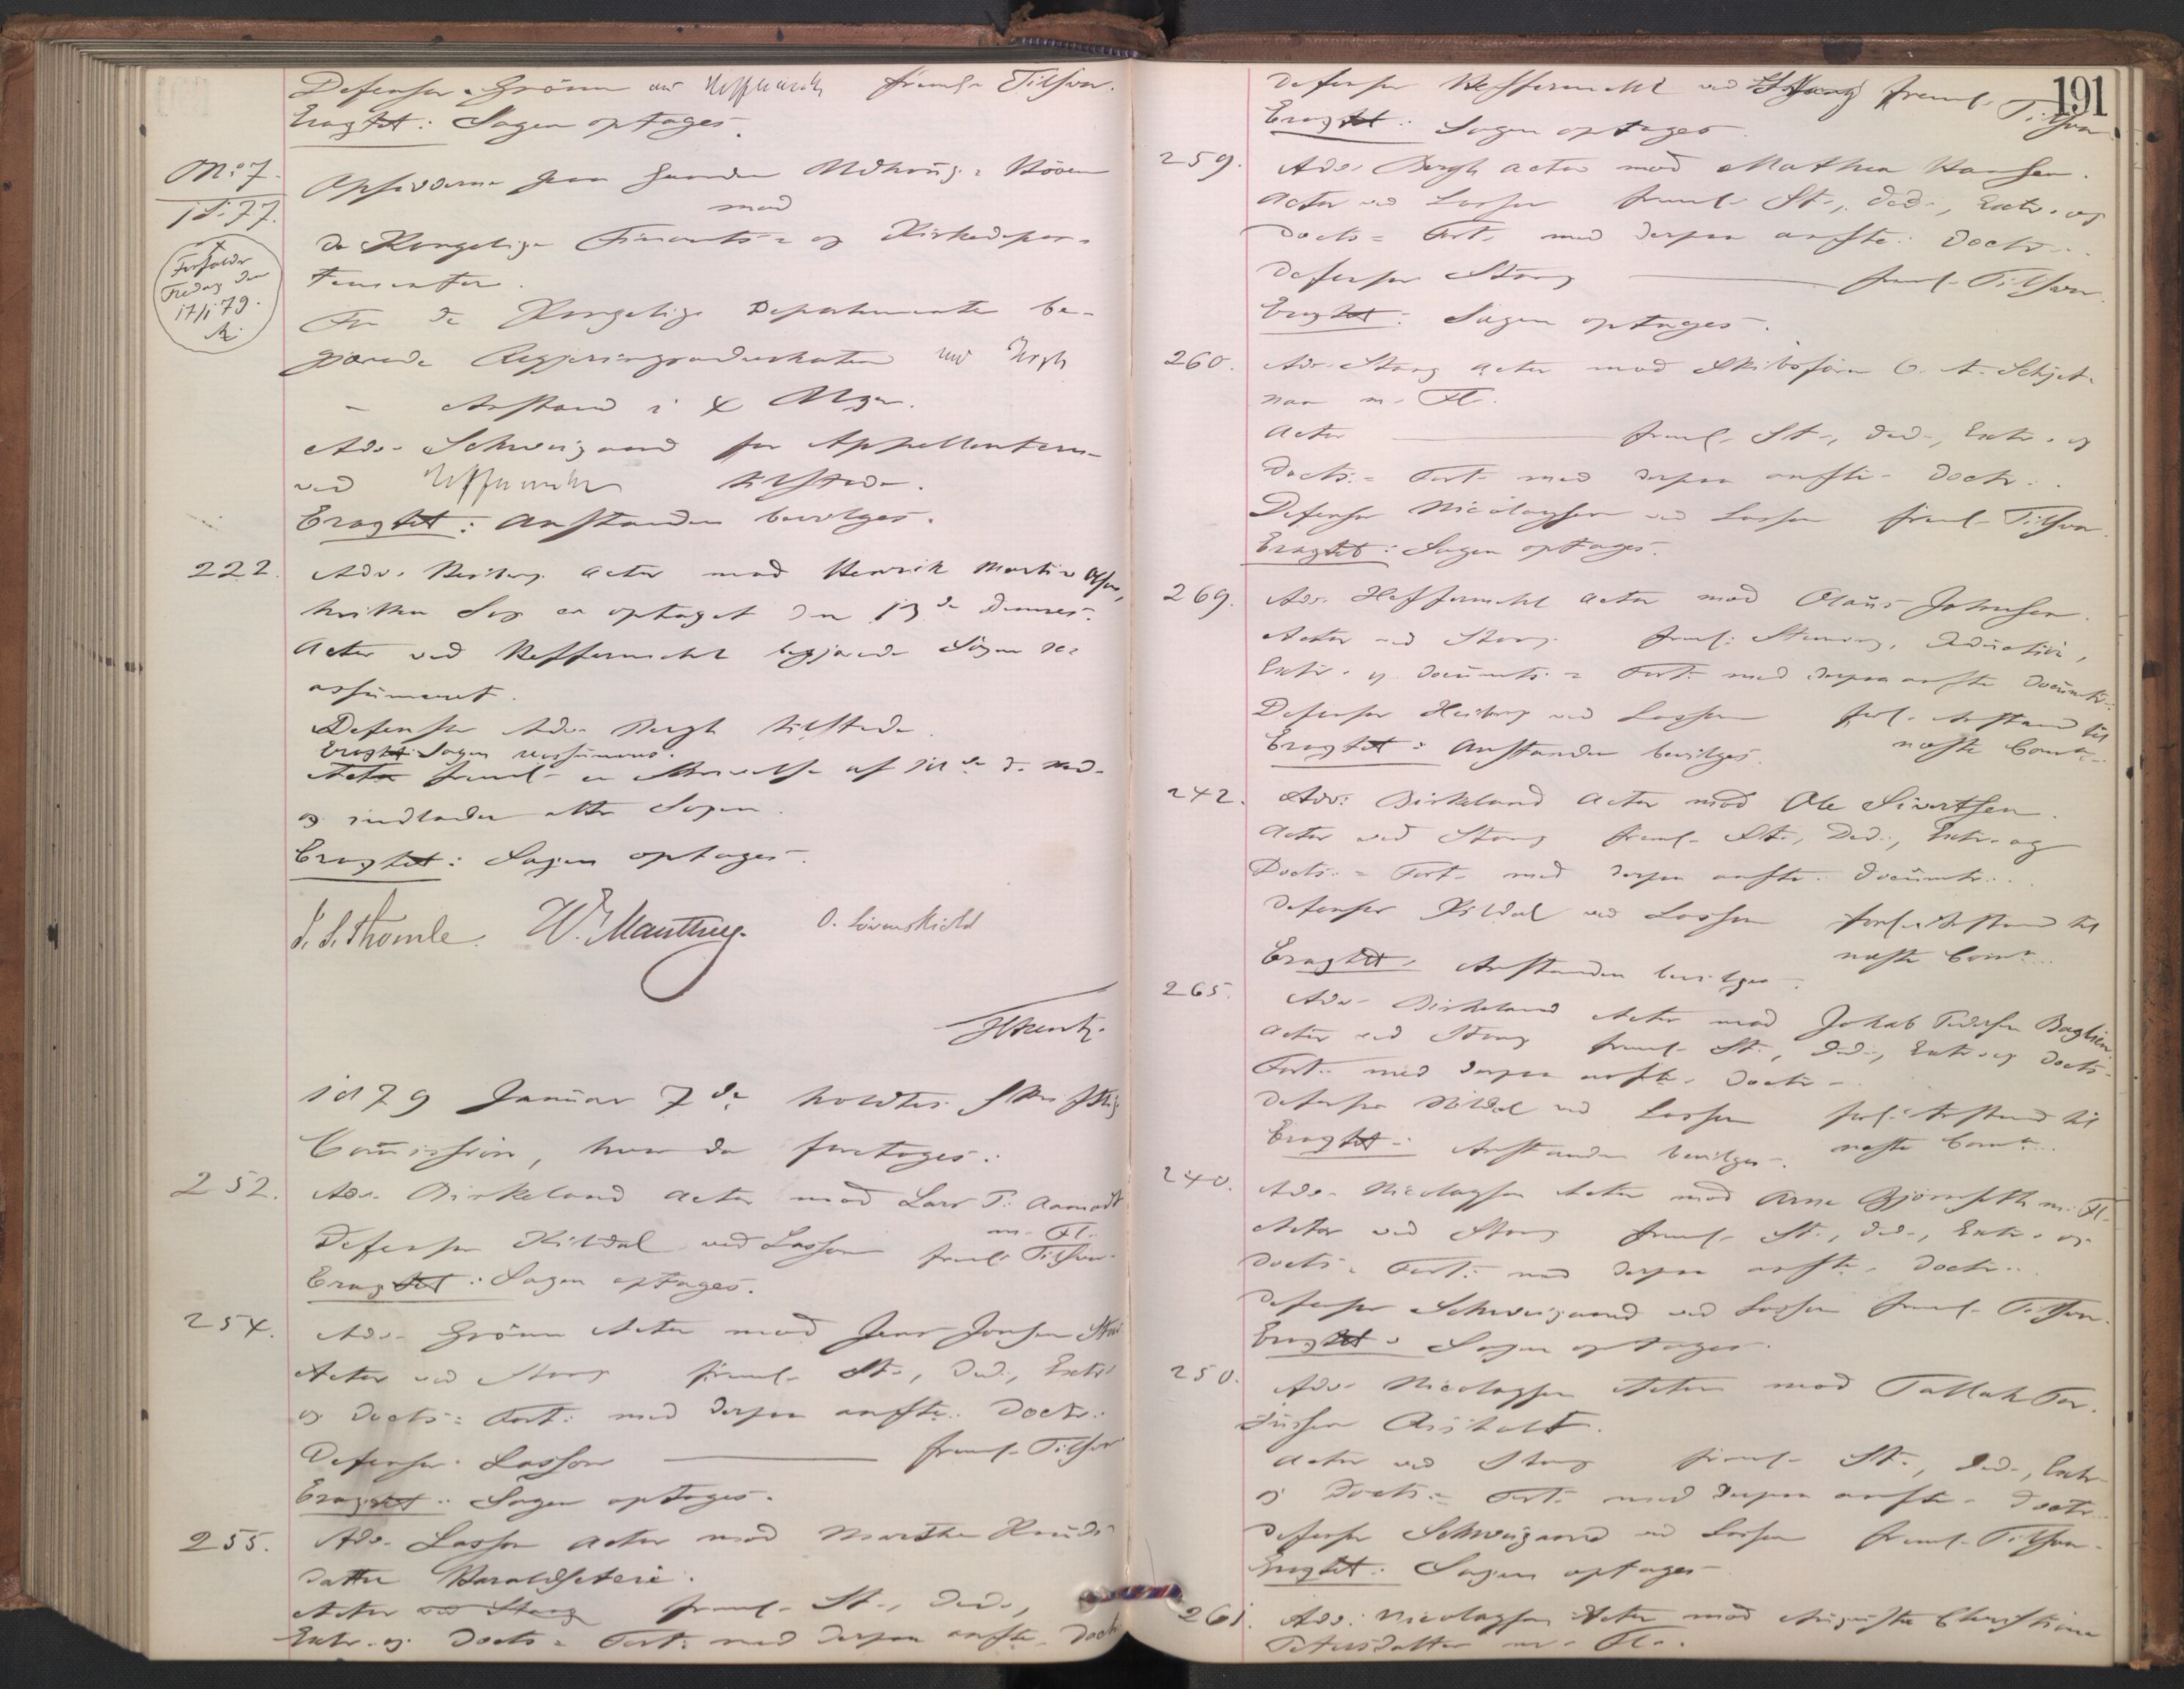 Defensor Grönn ved Hefferméhl fremls Tilsvar.
Eragtet: Sagen optages.
No 7.
1877.
Opsidderne paa Gaarden
mod
de Kongelige Finants- og Kirkedepar-
tementer.
Forfalder
Fredag den
17/1 79.
For de Kongelige Departementer be-
gjærede Regjeringsadvokaten ved
Anstand i 4 Uger.
Adv. Schweigaard for Appellanterne
ved Heffermehl tilstede.
Eragtet: Anstanden bevilges.
222.
Adv. Heiberg Actor mod Henrik Martin Olsen,
hvilken Sag er optaget den 13de Decemr.
Actor ved Heffermehl begjærede Sagen re-
assumeret.
Defensor Adv. Bergh tilstede.
Eragtet: Sagen reassumeres.
Actor freml. en Skrivelse af
og indlader atter Sagen.
Eragtet: Sagen optages.
J. S. Thomle. W. Manthey. O. Lövenskiold
1879 Januar 7de holdtes Skriftlig
Commission, hvor da foretoges:
252.
Adv. Birkeland Actor mod Lars T. Aamodt
m. Fl.
Defensor Kildal ved Lasson freml. Tilsvar.
Eragtet: Sagen optages.
254.
Adv. Grönn Actor mod Jens Jonsen
Actor ved Stang freml. St., Ded., Extr.
og Docts.- Fort. med derpaa anfte. Doctr.
Defensor Lasson freml. Tilsvar
Eragtet: Sagen optages.
255.
Adv. Lasson Actor mod Marthe Knuds-
datter Haraldseteie.
Actor ved Stang freml. St., Ded.,
Extr. og Docts.- Fort. med derpaa anfte. Doctr.
191
Defensor Heffermehl ved Stang freml. Tilsvar.
Eragtet: Sagen optages.
259.
Adv. Bergh Actor mod Mathea Hansen.
Actor ved Lasson freml. St., Ded., Extr. og
Docts.- Fort. med derpaa anfte. Doctr.
Defensor Stang freml. Tilsvar.
Eragtet: Sagen optages.
260.
Adv. Stang Actor mod Skibsförer O. A. Schjet-
nan m. Fl.
Actor freml. St., Ded., Extr. og
Docts.- Fort. med derpaa anfte. Doctr.
Defensor Nicolaysen ved Lasson freml. Tilsvar.
Eragtet: Sagen optages.
269.
Adv. Heffermehl Actor mod Olaus Johnsen.
Actor ved Stang freml. Stevning, Deduction,
Extr. og Documts.- Fort. med derpaa anfte Documtr.
Defensor Heiberg ved Lasson forl. Anstand til
næste Comn.
Eragtet: Anstanden bevilges.
242.
Adv. Birkeland Actor mod Ole Sivertsen.
Actor ved Stang freml. St., Ded., Extr. og
Docts.- Fort. med derpaa anfte. Documtr.
Defensor Kildal ved Lasson forl. Anstand til
næste Comn.
Eragtet: Anstanden bevilges.
265.
Adv. Birkeland Actor mod Jakob Pedersen Baglien.
Actor ved Stang freml. St., Ded., Extr. og Docts.-
Fort. med derpaa anfte. Doctr.
Defensor Kildal ved Lasson forl. Anstand til
næste Comn.
Eragtet: Anstanden bevilges.
240.
Adv. Nicolaysen Actor mod Arne Gjörnseth m. Fl.
Actor ved Stang freml. St., Ded., Extr. og
Docts.- Fort. med derpaa anfte. Doctr.
Defensor Schweigaard ved Lasson freml. Tilsvar.
Eragtet: Sagen optages.
250.
Adv. Nicolaysen Actor mod Tallak Ter-
jussen
Actor ved Stang freml. St., Ded., Extr.
og Docts.- Fort. med derpaa anfte. Doctr.
Defensor Schweigaard ved Lasson freml. Tilsvar.
Eragtet: Sagen optages.
261.
Adv. Nicolaysen Actor mod Augusta Christine
Petersdatter m. Fl.